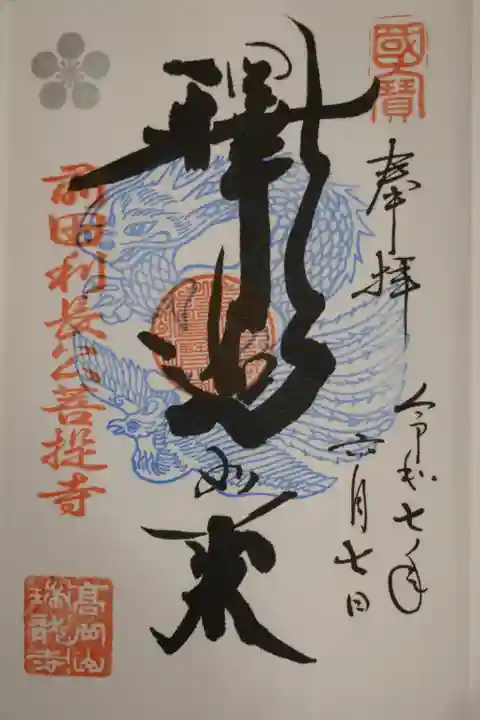 國寶
奉拝
令和七年
六月七日
釋迦如来
前田利長公菩提寺
高岡山
瑞龍寺